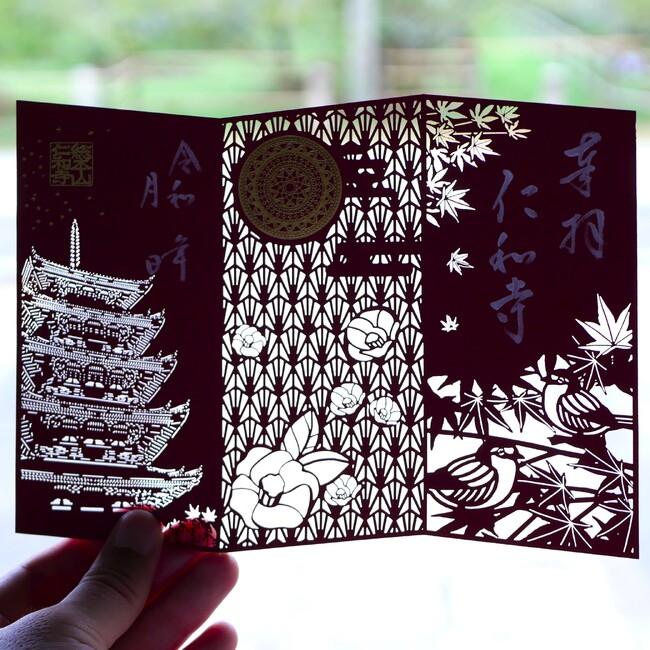 奉拝
仁和寺
令和 年
月 日
総本山
仁和寺